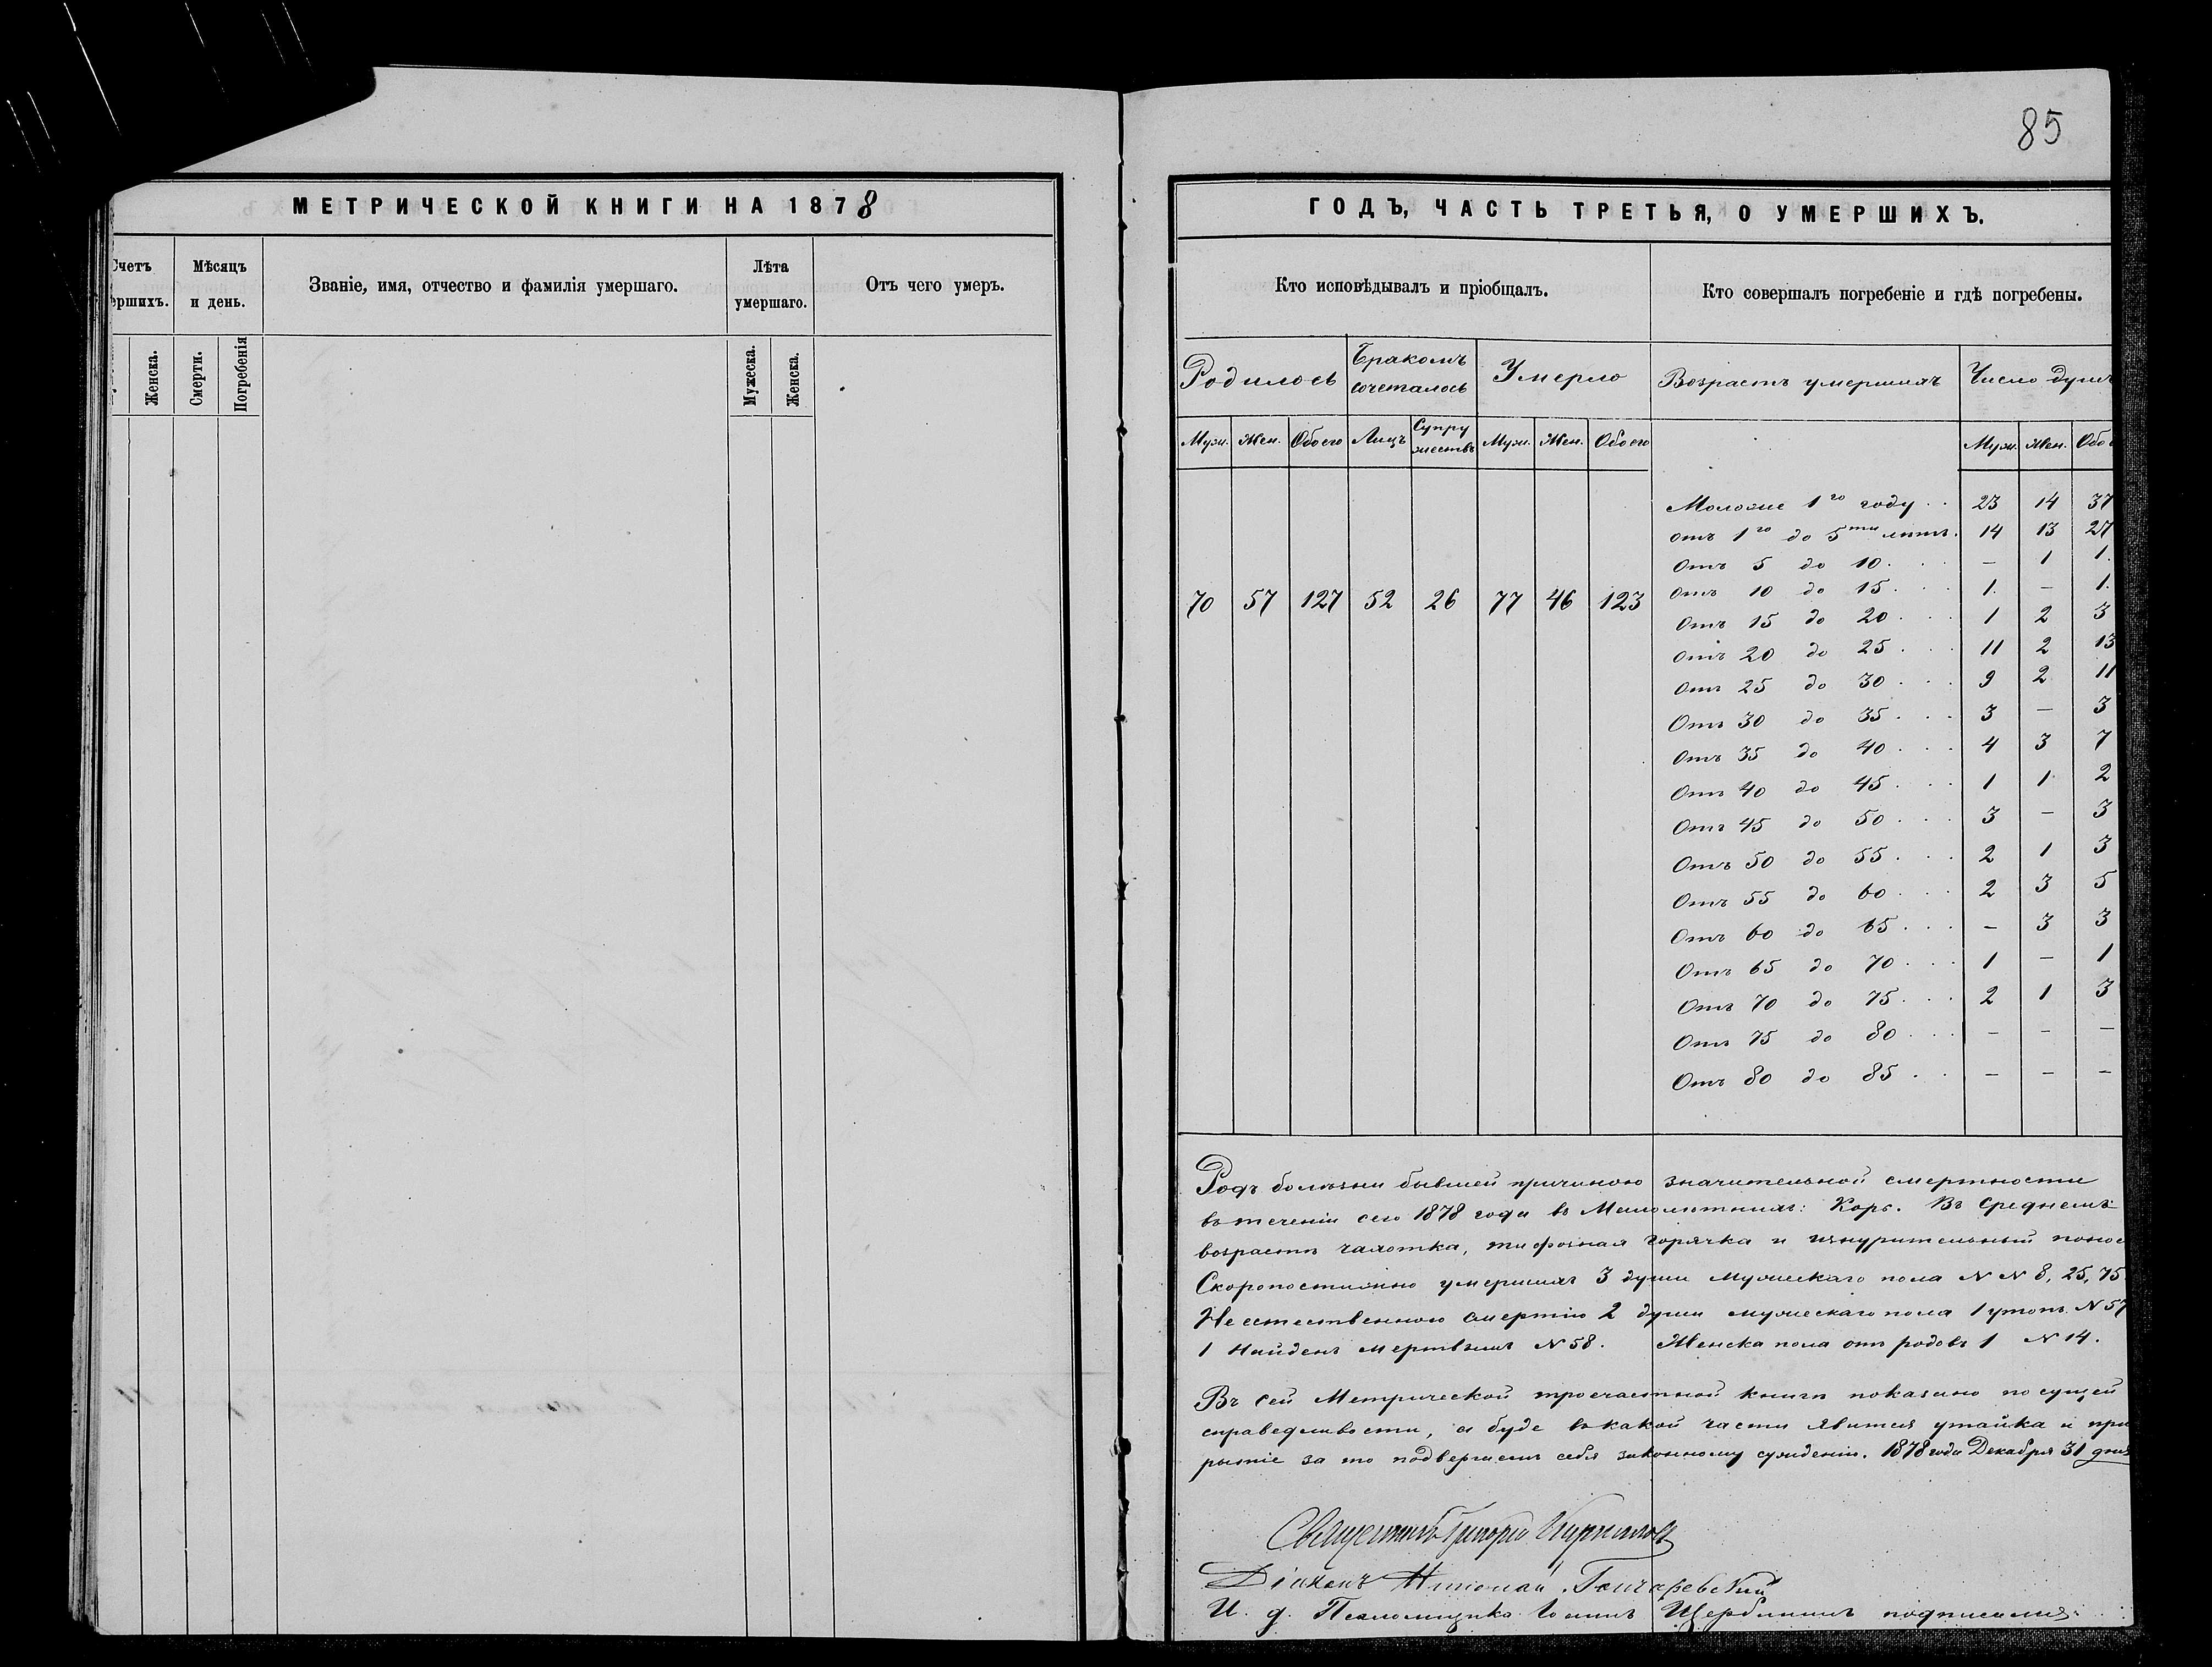 85
МЕТРИЧЕСКОЙ КНИГИ НА 1878
Счетъ
ершихъ.
Мѣсяцъ
и день.
Званіе, имя, отчество и фамилія умершаго.
Лѣта
умершаго.
Отъ чего умеръ.
Женска.
Смерти.
Погребенія
Мужеска.
Женска.
ГОДЪ, ЧАСТЬ ТРЕТЬЯ, О УМЕРШИХЪ.
Кто исповѣдывалъ и пріобщалъ.
Кто совершалъ погребеніе и гдѣ погребены.
Родилось
Бракомъ
сочеталось
Умерло
Возрастъ умершихъ
Число душъ
Муж. Жен. Обоего Лицъ Супру
жествъ Муж. Жен. Обоего
Муж. Жен. Обо
70 57 127 52 26 77 46 123
Моложе 1го году . . 23 14 37
отъ 1го до 5ти лѣтъ. 14 13 27
Отъ 5 до 10 . . . – 1 1.
Отъ 10 до 15 . . . 1. – 1.
Отъ 15 до 20 . . . 1 2 3
Отъ 20 до 25 . . . 11 2 13
Отъ 25 до 30 . . . 9 2 11
Отъ 30 до 35 . . . 3 – 3
Отъ 35 до 40 . . . 4 3 7
Отъ 40 до 45 . . . 1 1 2
Отъ 45 до 50 . . . 3 – 3
Отъ 50 до 55 . . . 2 1 3
Отъ 55 до 60 . . . 2 3 5
Отъ 60 до 65 . . . – 3 3
Отъ 65 до 70 . . . 1 – 1
Отъ 70 до 75 . . . 2 1 3
Отъ 75 до 80 . . . – – –
Отъ 80 до 85 . . – – –
Родъ болѣзни бывшей причиною значительной смертности
въ теченіи сего 1878 года въ Малолѣтнихъ: Корь. Въ Среднемъ
возрастѣ чахотка, тифозная горячка и изнурительный понос
Скоропостижно умершихъ 3 души мужескаго пола N N 8, 25, 75
Не естественною смертію 2 души мужескаго пола 1 утоп. N 57
1 Найденъ мертвымъ N 58. Женска пола отъ родовъ 1 N 14.
Въ сей Метрической троечастной книгѣ показано по сущей
справедливости, а буде въ какой части явится утайка и при
рытіе за то подвергаемъ себя законному сужденію. 1878 года Декабря 31 дня
Священникъ Григорій
Діаконъ Гончаревскій
И. д. Псаломщика Іоаннъ Щербининъ подписались.